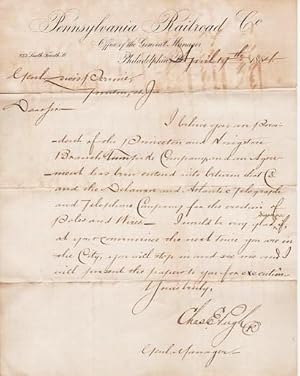 Pennsylvania Railroad Co
Office of the General Manager
233 South Fourth St
Philadelphia, April 19th 18
Princeton, N. J.
Dear Sir
I believe you are Presi-
dent of the Princeton and Kingston
Branch Turnpike Company an Agree-
ment has been entered into between that Co
and the Delaware and Atlantic Telegraph
and Telephone Company for the erection of
Poles and Wires – I would be very glad, if
at your convenience the next time you are in
the City, you will stop in and see me and I
will present the papers to you for execution
Yours truly,
Chas E Pugh
Genl Manager